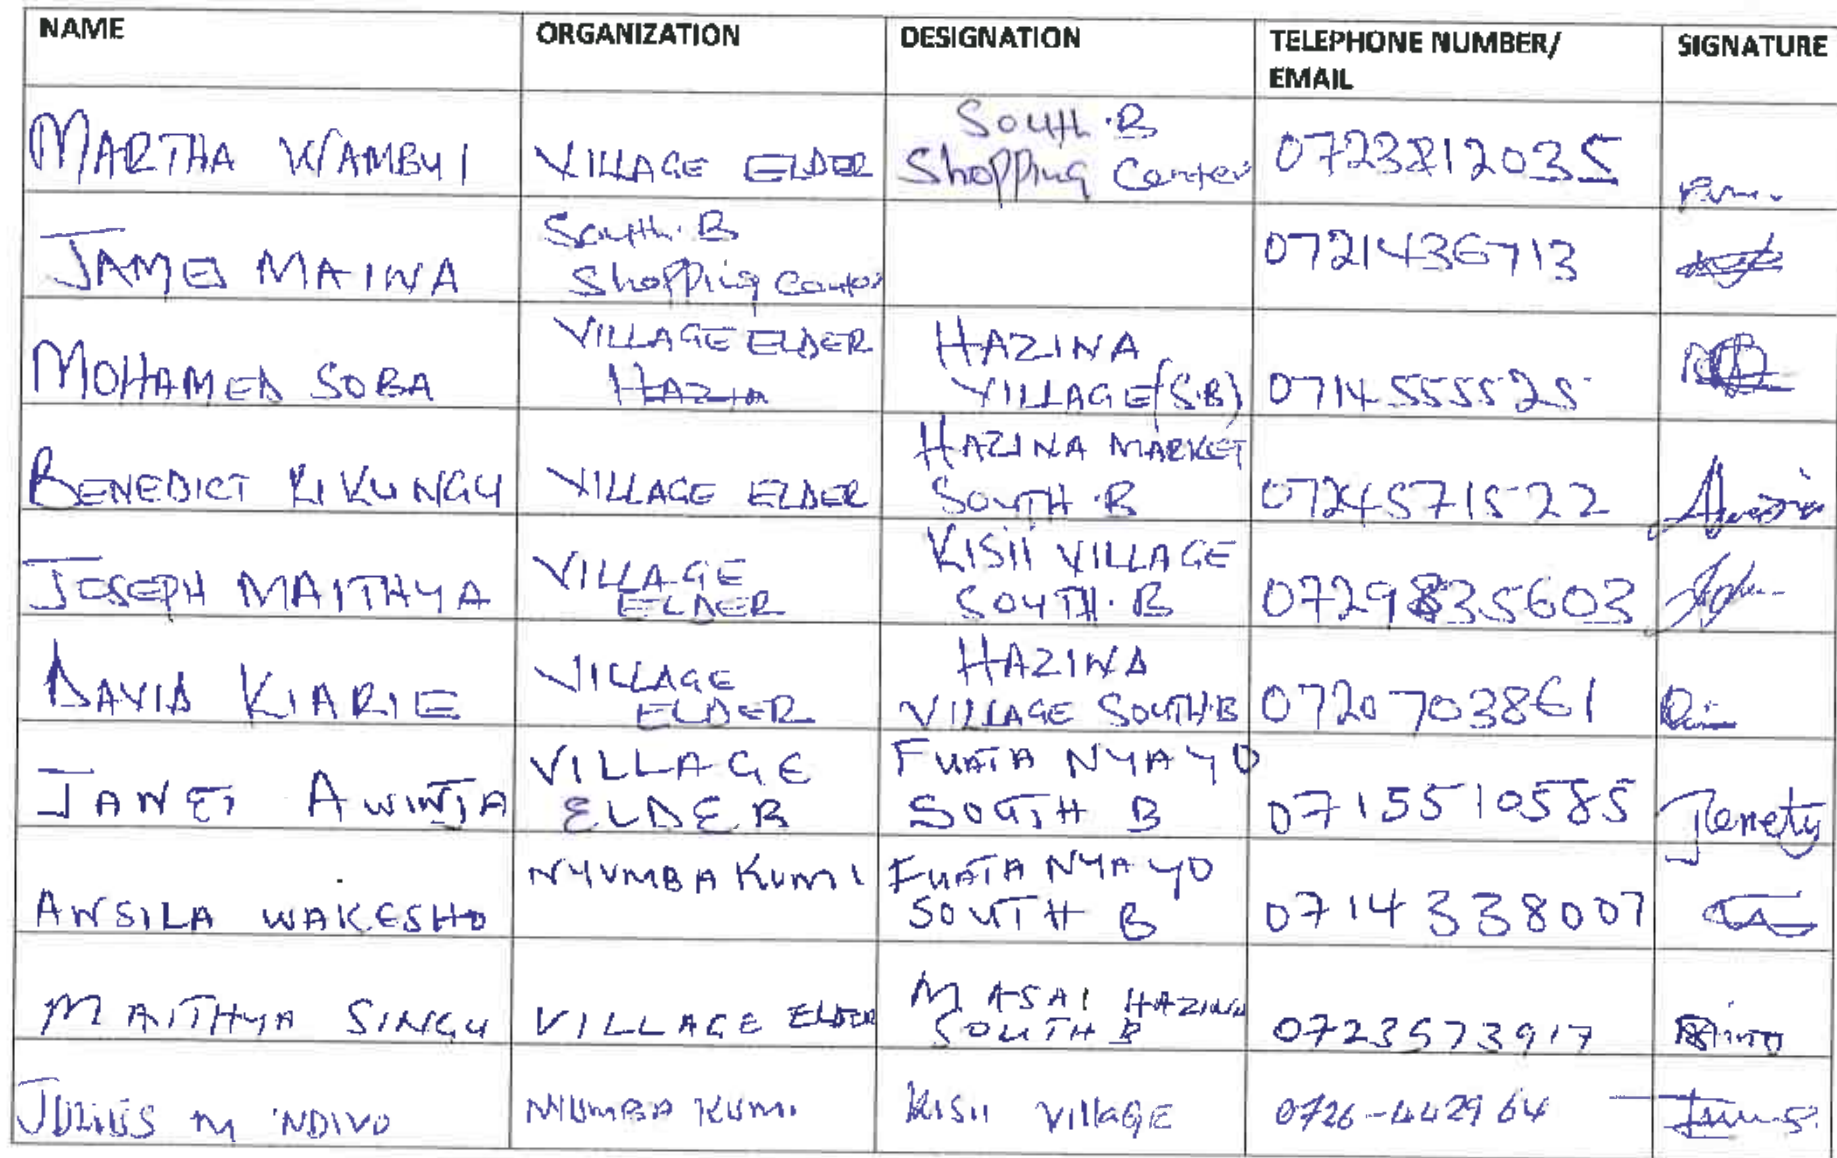 NAME ORGANIZATION DESIGNATION TELEPHONE NUMBER/ EMAIL SIGNATURE
MARTHA WAMBUI VILLAGE ELDER South.B Shopping Center 0723812035
JAMES MAINA South.B Shopping Center 0721436713
MOHAMED SOBA VILLAGE ELDER HAZINA VILLAGE (S.B) 0714555525
BENEDICT KIKUNGU VILLAGE ELDER HAZINA MARKET SOUTH.B 0724571522
JOSEPH MAITHYA VILLAGE ELDER KISII VILLAGE SOUTH.B 0729835603
DAVID KIARIE VILLAGE ELDER HAZINA VILLAGE SOUTH.B 0720703861
JANET AWINJA VILLAGE ELDER FUATA NYAYO SOUTH B 0715510585
ANSILA WAKESHO NYUMBA KUMI FUATA NYAYO SOUTH B 0714338007
MAITHYA SINGU VILLAGE ELDER MASAI HAZINA SOUTH B 0723573917
JULIUS M NDIVO NYUMBA KUMI KISII VILLAGE 0726-442964